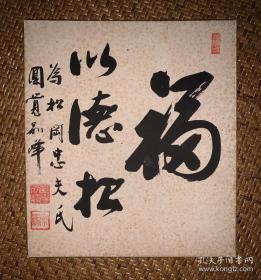 福
以德招
為松岡忠夫氏
圓覺
孔夫子旧书网